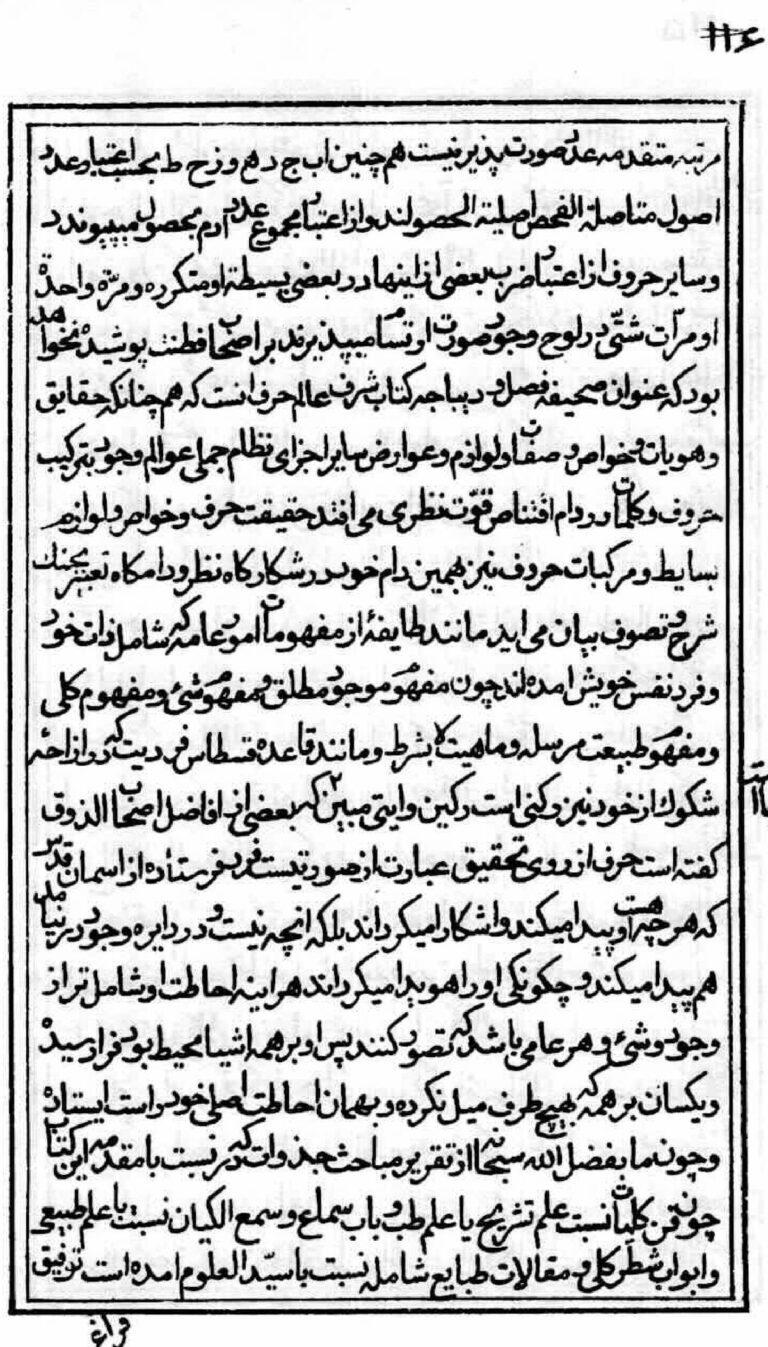 ۱۱۶
مرتبه متقدمه عدد صورت پذیر نیست هم چنین اب ج د ه و ز ح ط بحسب اعتبار عدد
اصول متاصلة الفحص اصلیته الحصولند و از اعتبار مجموع عدد آدم بمحصول میپیوندد
و سایر حروف از اعتبار ضرب بعضی از اینها در بعضی بسیطة او متکرره و مرّة واحدة
او مرّات شتّی در لوح وجود صورت ارتسام میپذیرند بر اصحاب فطنت پوشیده نخواهد
بود که عنوان صحیفه فصل و دیباجه کتاب شرف عالم حرف انست که هم چنانکه حقایق
و هویات و خواص و صفات و لوازم و عوارض سایر اجزای نظام جملی عوالم وجود بترکیب
حروف و کلمات در دام اقتناص قوّت نظری می افتد حقیقت حرف و خواص و لوازم
بسایط و مرکبات حروف نیز بهمین دام خود در شکارگاه نظر و دامگاه تعبیر بچنک
شرح و تصوف بیان می اید مانند طایفهٔ از مفهومات امور عامه که شامل ذات خود
و فرد نفس خویش امده اند چون مفهوم موجود مطلق و مفهوم شئ و مفهوم کلی
و مفهوم طبیعت مرسله و ماهیت لا بشرط و مانند قاعده قسطاس فردیت که در ازاحه
شکوک از خود نیز رکنی است رکین و ایتی مبین که بعضی از افاضل اصحاب الذوق
گفته است حرف از روی تحقیق عبارت از صورتیست فرد فرستاده از اسمان قدس
که هر چه هست او پیدا میکند و اشکارا میکرداند بلکه انچه نیست و در دایره وجود در نیامد
هم پیدا میکند و چکونکی او را هویدا میکرداند هراینه احاطت او شامل تر از
وجود و شئ و هر عامی باشد که تصور کنند پس او بر همه اشیا محیط بود و فراز رسیده
و یکسان بر همه که بهیچ طرف میل نکرده و بهمان احاطت اصلی خود راست ایستاده
و چون ما بفضل الله سبحانه از تقریر مباحث جذوات که در نسبت با مقدمه این کتاب
چون فن کلیات نسبت علم تشریح با علم طب و باب سماع و سمع الکیان نسبت با علم طبیعی
و ابواب شطر کلی و مقالات طبایع شامله نسبت با سیّد العلوم امده است توفیق
فراغ